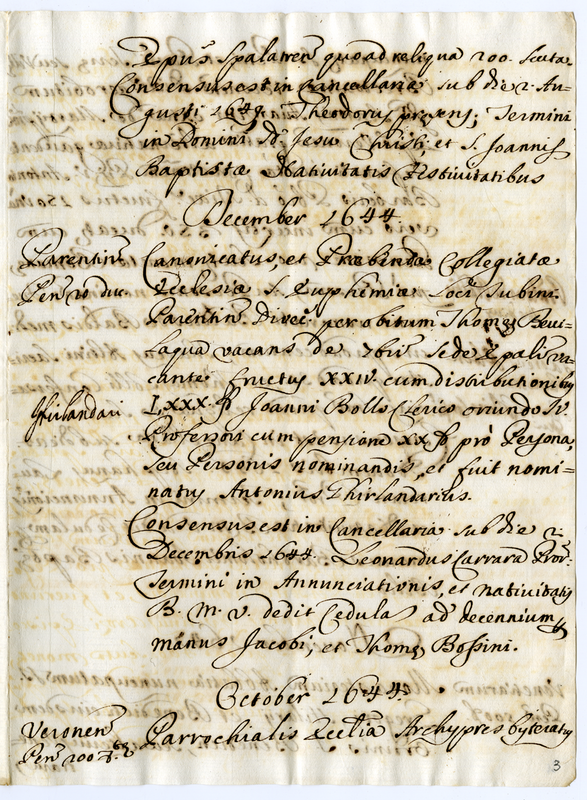 Epus Spalatren quoad reliqua 200. scuta
Consensus est in Cancellaria sub die 2. Au-
gusti 1644. Theodorus prasens; Termini
in Domini Jesu Christi et S. Joannis
Baptistæ Nativitatis Festivitatibus
December 1644.
Parentin
Pen 20 duc.
Canonicatus, et Præbenda Collegiatæ
Ecclesiæ S. Euphemiæ Loci Rubini.
Parentin. Diœc. per obitum Thomæ Bevi-
laqua vacans de 7bri sede Epali va-
cante fructus XXIV. cum distributionibus
Ghirlandari
LXXX. Joanni Bolls Clerico oriundo
Professori cum pensione XX. prò Persona,
seu Personis nominandis, et fuit nomi-
natus Antonius Ghirlandarius.
Consensus est in Cancellaria sub die 2.
Decembris 1644. Leonardus Carrara Pror.
Termini in Annunciationis, et nativitatis
B. M. V. dedit Cedulas ad decennium
manus Jacobi, et Thomæ Bossini.
October 1644.
Veronen
Pen 200
Parrochialis Ecclia Archypresbyteratus
3